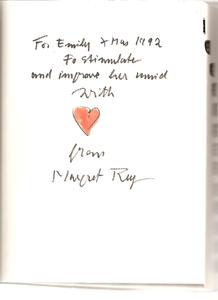 For Emily Xmas 1992
To stimulate
and improve her mind
with
from
Margret Rey